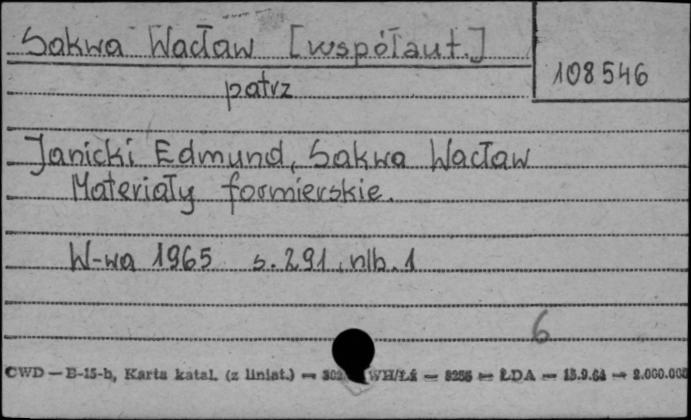 Sakwa Wacław [współaut.]
108546
patrz
Janicki Edmund, Sakwa Wacław
Materiały formierskie.
W-wa 1965 s. 291, nlb. 1
6
CWD — B-15-b, Karta katal. (z liniat.) — WH/Łź — 8256 — ŁDA — 15.9.64 — 2.000.000